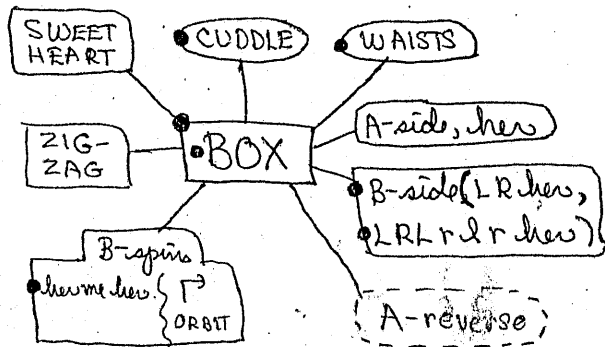 SWEET
HEART
CUDDLE
WAISTS
ZIG-
ZAG
BOX
A-side, her
B-side (LR her,
LRL r l r her)
B-spins
her me her.
ORBIT
A-reverse